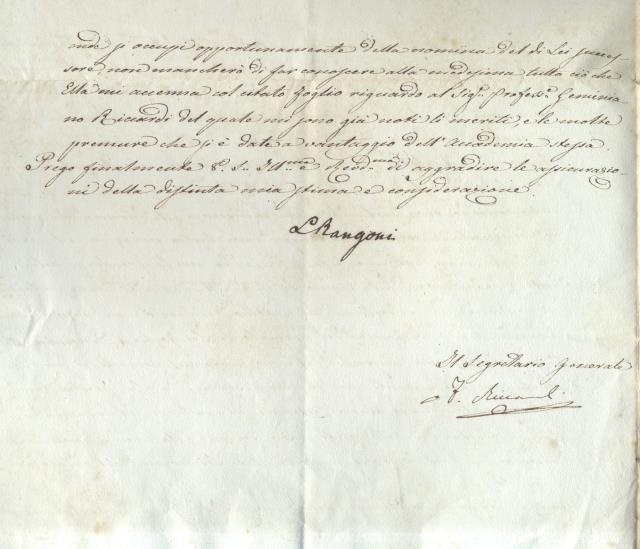 onde si occupi opportunamente della nomina del di Lei succes-
sore, non mancherò di far conoscere alla medesima tutto ciò che
Ella mi accenna col citato foglio riguardo al Sig.r Profess.e Geminia-
no Riccardi del quale mi sono già noti li meriti, e le molte
premure che si è date a vantaggio dell'Accademia stessa.
Prego finalmente V. S. Ill.ma e Rev.ma di aggradire le assicurazio-
ni della distinta mia stima e considerazione.
L Rangoni
Il Segretario Generale